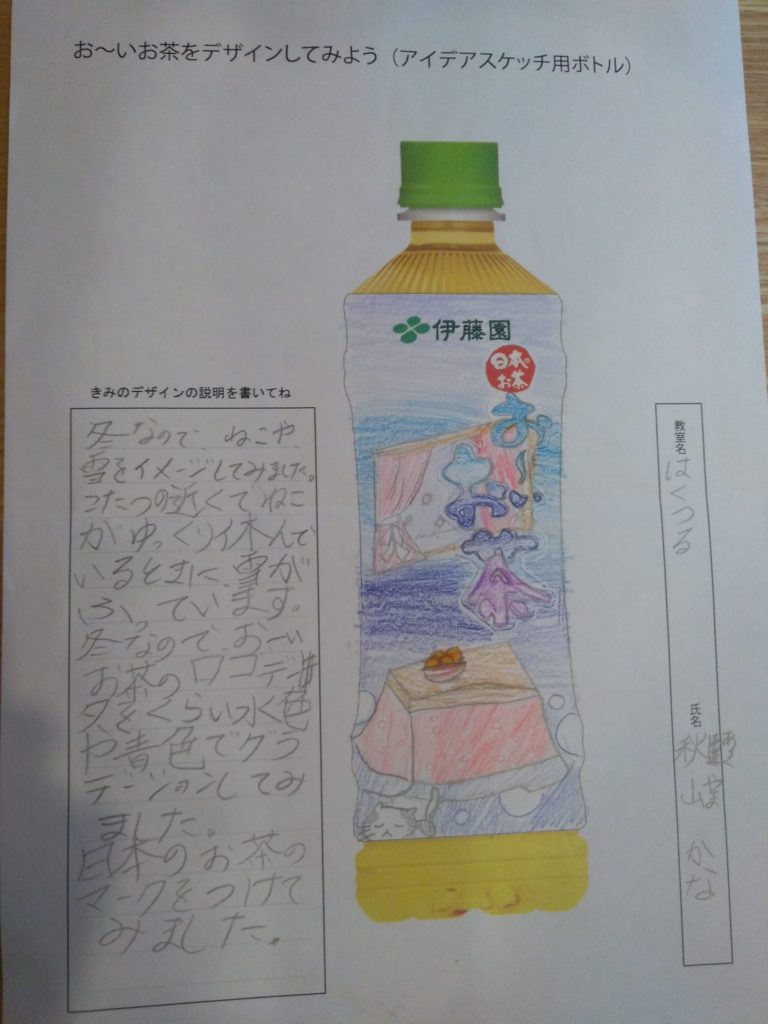 お～いお茶をデザインしてみよう（アイデアスケッチ用ボトル）
伊藤園
日本の
お茶
お～い
お茶
きみのデザインの説明を書いてね
冬なので、ねこや、
雪をイメージしてみました。
こたつの近くでねこ
がゆっくり休んで
いるときに、雪が
ふっています。
冬なので、お～い
お茶のロゴデザ
をくらい水色
や青色でグラ
デーションしてみ
ました。
日本のお茶の
マークをつけて
みました。
教室名
はくつる
氏名
秋山 かな